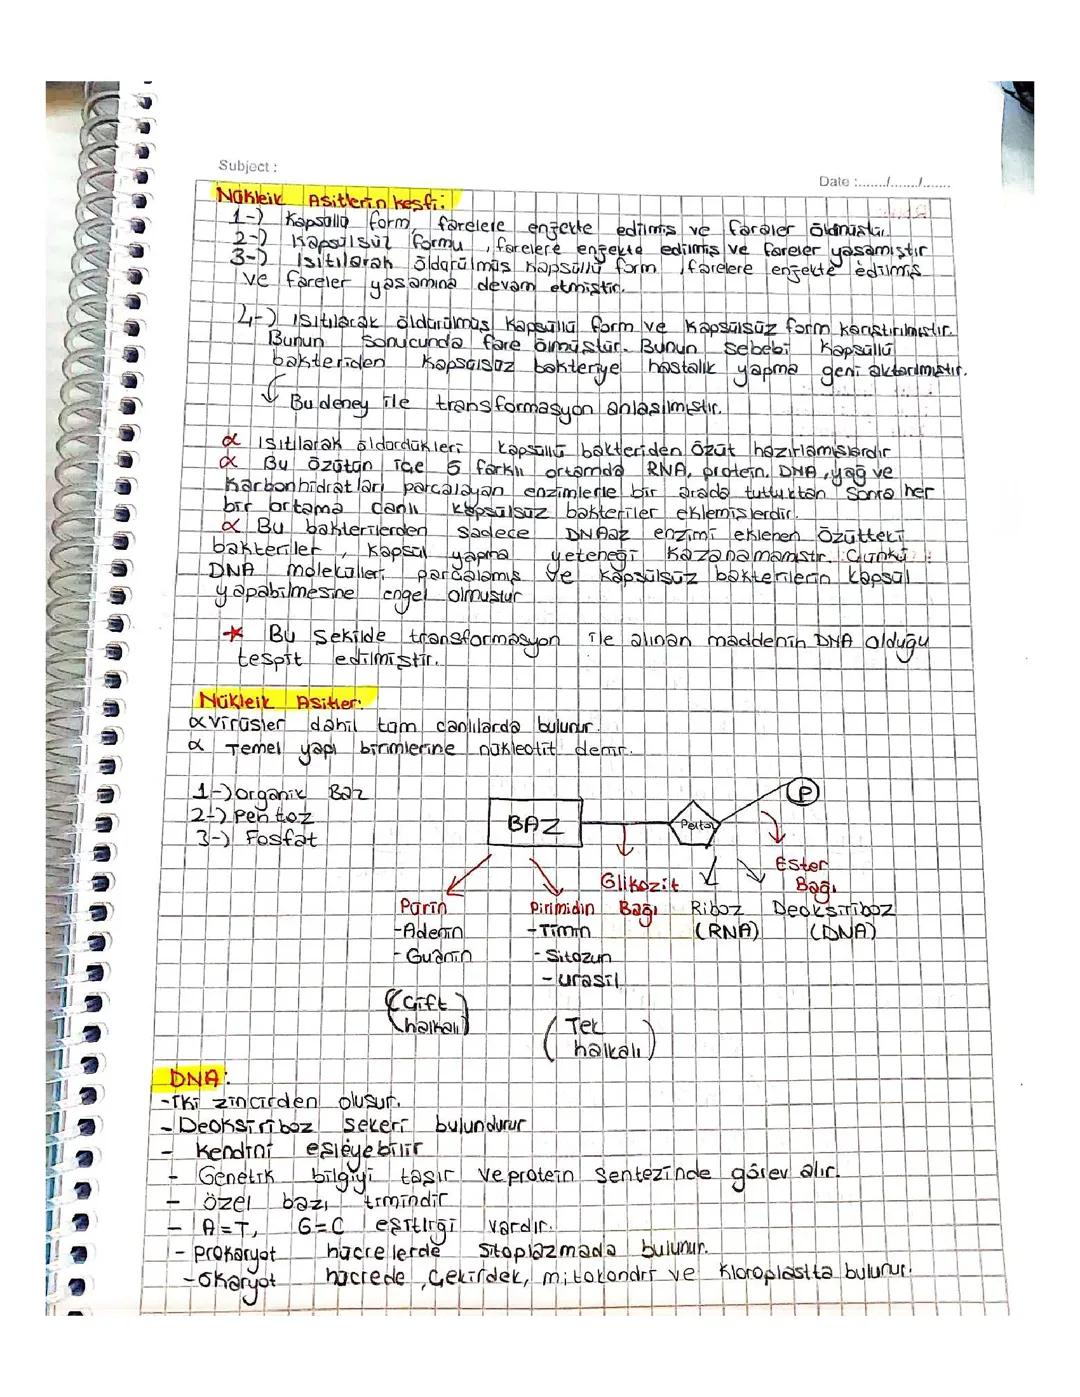 Subject :
Date :......../......../.......
Nükleik Asitlerin keşfi:
1-) Kapsüllü form, farelere enjekte edilmiş ve fareler ölmüştür.
2-) Kapsülsüz formu, farelere enjekte edilmiş ve fareler yaşamıştır
3-) Isıtılarak öldürülmüş kapsüllü form, farelere enjekte edilmiş
ve fareler yaşamına devam etmiştir.
4-) ısıtılarak öldürülmüş kapsüllü form ve kapsülsüz form karıştırılmıştır.
Bunun sonucunda fare ölmüştür. Bunun sebebi kapsüllü
bakteriden kapsülsüz bakteriye hastalık yapma geni aktarılmıştır.
Bu deney ile transformasyon anlaşılmıştır.
α ısıtılarak öldürdükleri kapsüllü bakteriden özüt hazırlamışlardır
α Bu özütün içe 5 farklı ortamda RNA, protein, DNA, yağ ve
karbonhidratları parçalayan enzimlerle bir arada tuttuktan sonra her
bir ortama canlı kapsülsüz bakteriler eklemişlerdir.
α Bu bakterilerden sadece DNAaz enzimi eklenen özütteki
bakteriler, kapsül yapma yeteneği kazanamamıştır. Çünkü
DNA molekülleri parçalamış ve kapsülsüz bakterilerin kapsül
yapabilmesine engel olmuştur
* Bu şekilde transformasyon ile alınan maddenin DNA olduğu
tespit edilmiştir.
Nükleik Asitler:
α virüsler dahil tüm canlılarda bulunur.
α Temel yapı birimlerine nükleotit denir.
1-) organik Baz
2-) pentoz
3-) Fosfat
BAZ
Pentoz
P
Glikozit
Bağı
Ester
Bağı
Pürin
-Adenin
-Guanin
(Çift
halkalı)
Pirimidin
-Timin
-Sitozin
-urasil
(Tek
halkalı)
Riboz
(RNA)
Deoksiriboz
(DNA)
DNA:
-İki zincirden oluşur.
-Deoksiriboz şekeri bulundurur
- kendini eşleyebilir
- Genetik bilgiyi taşır ve protein sentezinde görev alır.
- özel bazı timindir
- A=T, G=C eşitliği vardır.
- prokaryot hücrelerde sitoplazmada bulunur.
-ökaryot hücrede, çekirdek, mitokondri ve kloroplastta bulunur.